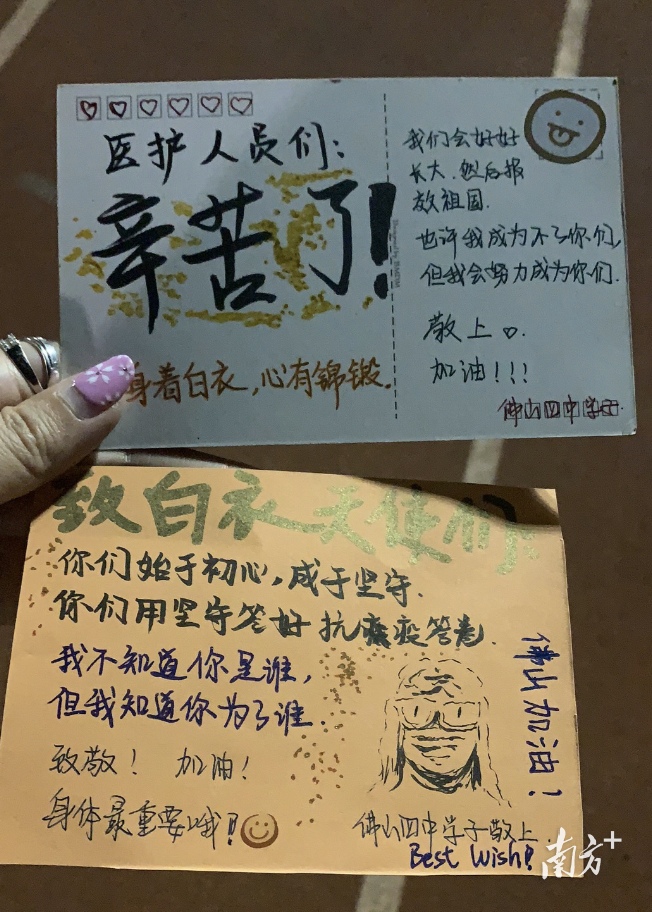 医护人员们:
辛苦了!
身着白衣,心有锦锻.
我们会好好
长大.然后报
效祖国.
也许我成为不了你们,
但我会努力成为你们.
敬上♡.
加油!!!
佛山四中学子.
致白衣天使们:
你们始于初心,成于坚守.
你们用坚守答好抗疫答卷.
我不知道你是谁,
但我知道你为了谁
致敬! 加油!
身体最重要哦!!
佛山加油!
佛山四中学子敬上.
Best Wish!
南方+